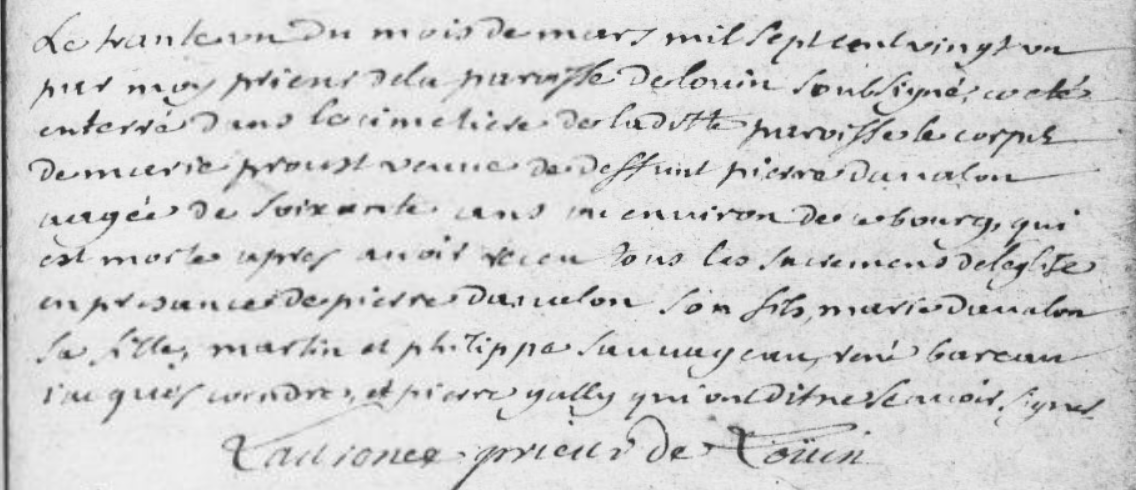 Le trante un du mois de mars mil sept cent vingt un
par moy prieur de la paroisse de louin soubsigné, a eté
enterré dans le cimetiere de laditte paroisse le corps
de marie proust veuve de deffunt pierre davalon
aagée de soixante ans ou environ de ce bourg, qui
est morte apres avoir receu tous les sacremens de leglise
en presance de pierre davalon son fils, marie davalon
sa fille, martin et philippe sauvageau, rené bareau
jacques et pierre gally qui ont dit ne scavoir signer
prieur de Loüin